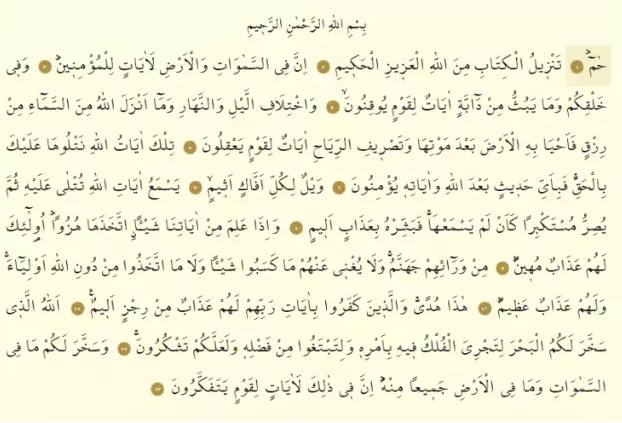 بِسْمِ اللهِ الرَّحْمٰنِ الرَّح۪يمِ
حٰمٓۜ ﴿١﴾ تَنْز۪يلُ الْكِتَابِ مِنَ اللهِ الْعَز۪يزِ الْحَك۪يمِ ﴿٢﴾ اِنَّ فِي السَّمٰوَاتِ وَالْاَرْضِ لَاٰيَاتٍ لِلْمُؤْمِن۪ينَۜ ﴿٣﴾ وَف۪ي
خَلْقِكُمْ وَمَا يَبُثُّ مِنْ دَٓابَّةٍ اٰيَاتٌ لِقَوْمٍ يُوقِنُونَۙ ﴿٤﴾ وَاخْتِلَافِ الَّيْلِ وَالنَّهَارِ وَمَٓا اَنْزَلَ اللهُ مِنَ السَّمَٓاءِ مِنْ
رِزْقٍ فَاَحْيَا بِهِ الْاَرْضَ بَعْدَ مَوْتِهَا وَتَصْر۪يفِ الرِّيَاحِ اٰيَاتٌ لِقَوْمٍ يَعْقِلُونَ ﴿٥﴾ تِلْكَ اٰيَاتُ اللهِ نَتْلُوهَا عَلَيْكَ
بِالْحَقِّۚ فَبِاَيِّ حَد۪يثٍ بَعْدَ اللهِ وَاٰيَاتِه۪ يُؤْمِنُونَ ﴿٦﴾ وَيْلٌ لِكُلِّ اَفَّاكٍ اَث۪يمٍۙ ﴿٧﴾ يَسْمَعُ اٰيَاتِ اللهِ تُتْلٰى عَلَيْهِ ثُمَّ
يُصِرُّ مُسْتَكْبِرًا كَاَنْ لَمْ يَسْمَعْهَاۚ فَبَشِّرْهُ بِعَذَابٍ اَل۪يمٍ ﴿٨﴾ وَاِذَا عَلِمَ مِنْ اٰيَاتِنَا شَيْـًٔاۨ اتَّخَذَهَا هُزُوًاۜ اُو۬لٰٓئِكَ
لَهُمْ عَذَابٌ مُه۪ينٌۜ ﴿٩﴾ مِنْ وَرَٓائِهِمْ جَهَنَّمُۚ وَلَا يُغْن۪ي عَنْهُمْ مَا كَسَبُوا شَيْـًٔا وَلَا مَا اتَّخَذُوا مِنْ دُونِ اللهِ اَوْلِيَٓاءَۚ
وَلَهُمْ عَذَابٌ عَظ۪يمٌۜ ﴿١٠﴾ هٰذَا هُدًىۚ وَالَّذ۪ينَ كَفَرُوا بِاٰيَاتِ رَبِّهِمْ لَهُمْ عَذَابٌ مِنْ رِجْزٍ اَل۪يمٌ۟ ﴿١١﴾ اَللهُ الَّذ۪ي
سَخَّرَ لَكُمُ الْبَحْرَ لِتَجْرِيَ الْفُلْكُ ف۪يهِ بِاَمْرِه۪ وَلِتَبْتَغُوا مِنْ فَضْلِه۪ وَلَعَلَّكُمْ تَشْكُرُونَۚ ﴿١٢﴾ وَسَخَّرَ لَكُمْ مَا فِي
السَّمٰوَاتِ وَمَا فِي الْاَرْضِ جَم۪يعًا مِنْهُۜ اِنَّ ف۪ي ذٰلِكَ لَاٰيَاتٍ لِقَوْمٍ يَتَفَكَّرُونَ ﴿١٣﴾